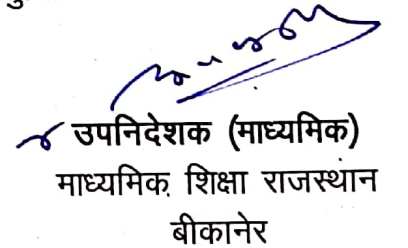 उपनिदेशक (माध्यमिक)
माध्यमिक शिक्षा राजस्थान
बीकानेर